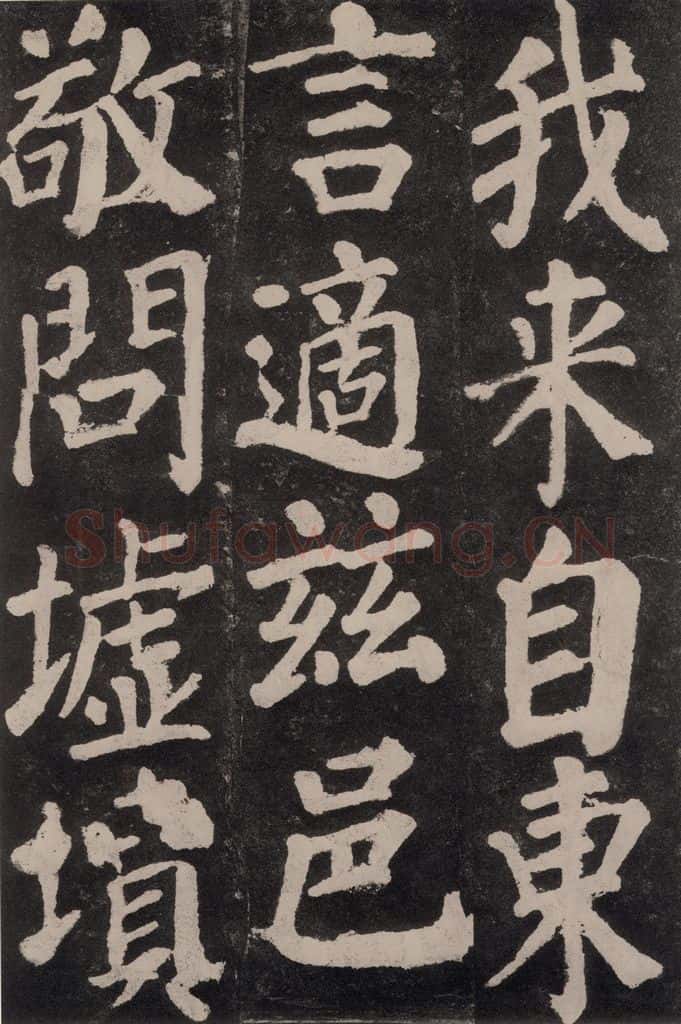 我来自東
言適兹邑
敬問墟墳
Shufawang.CN